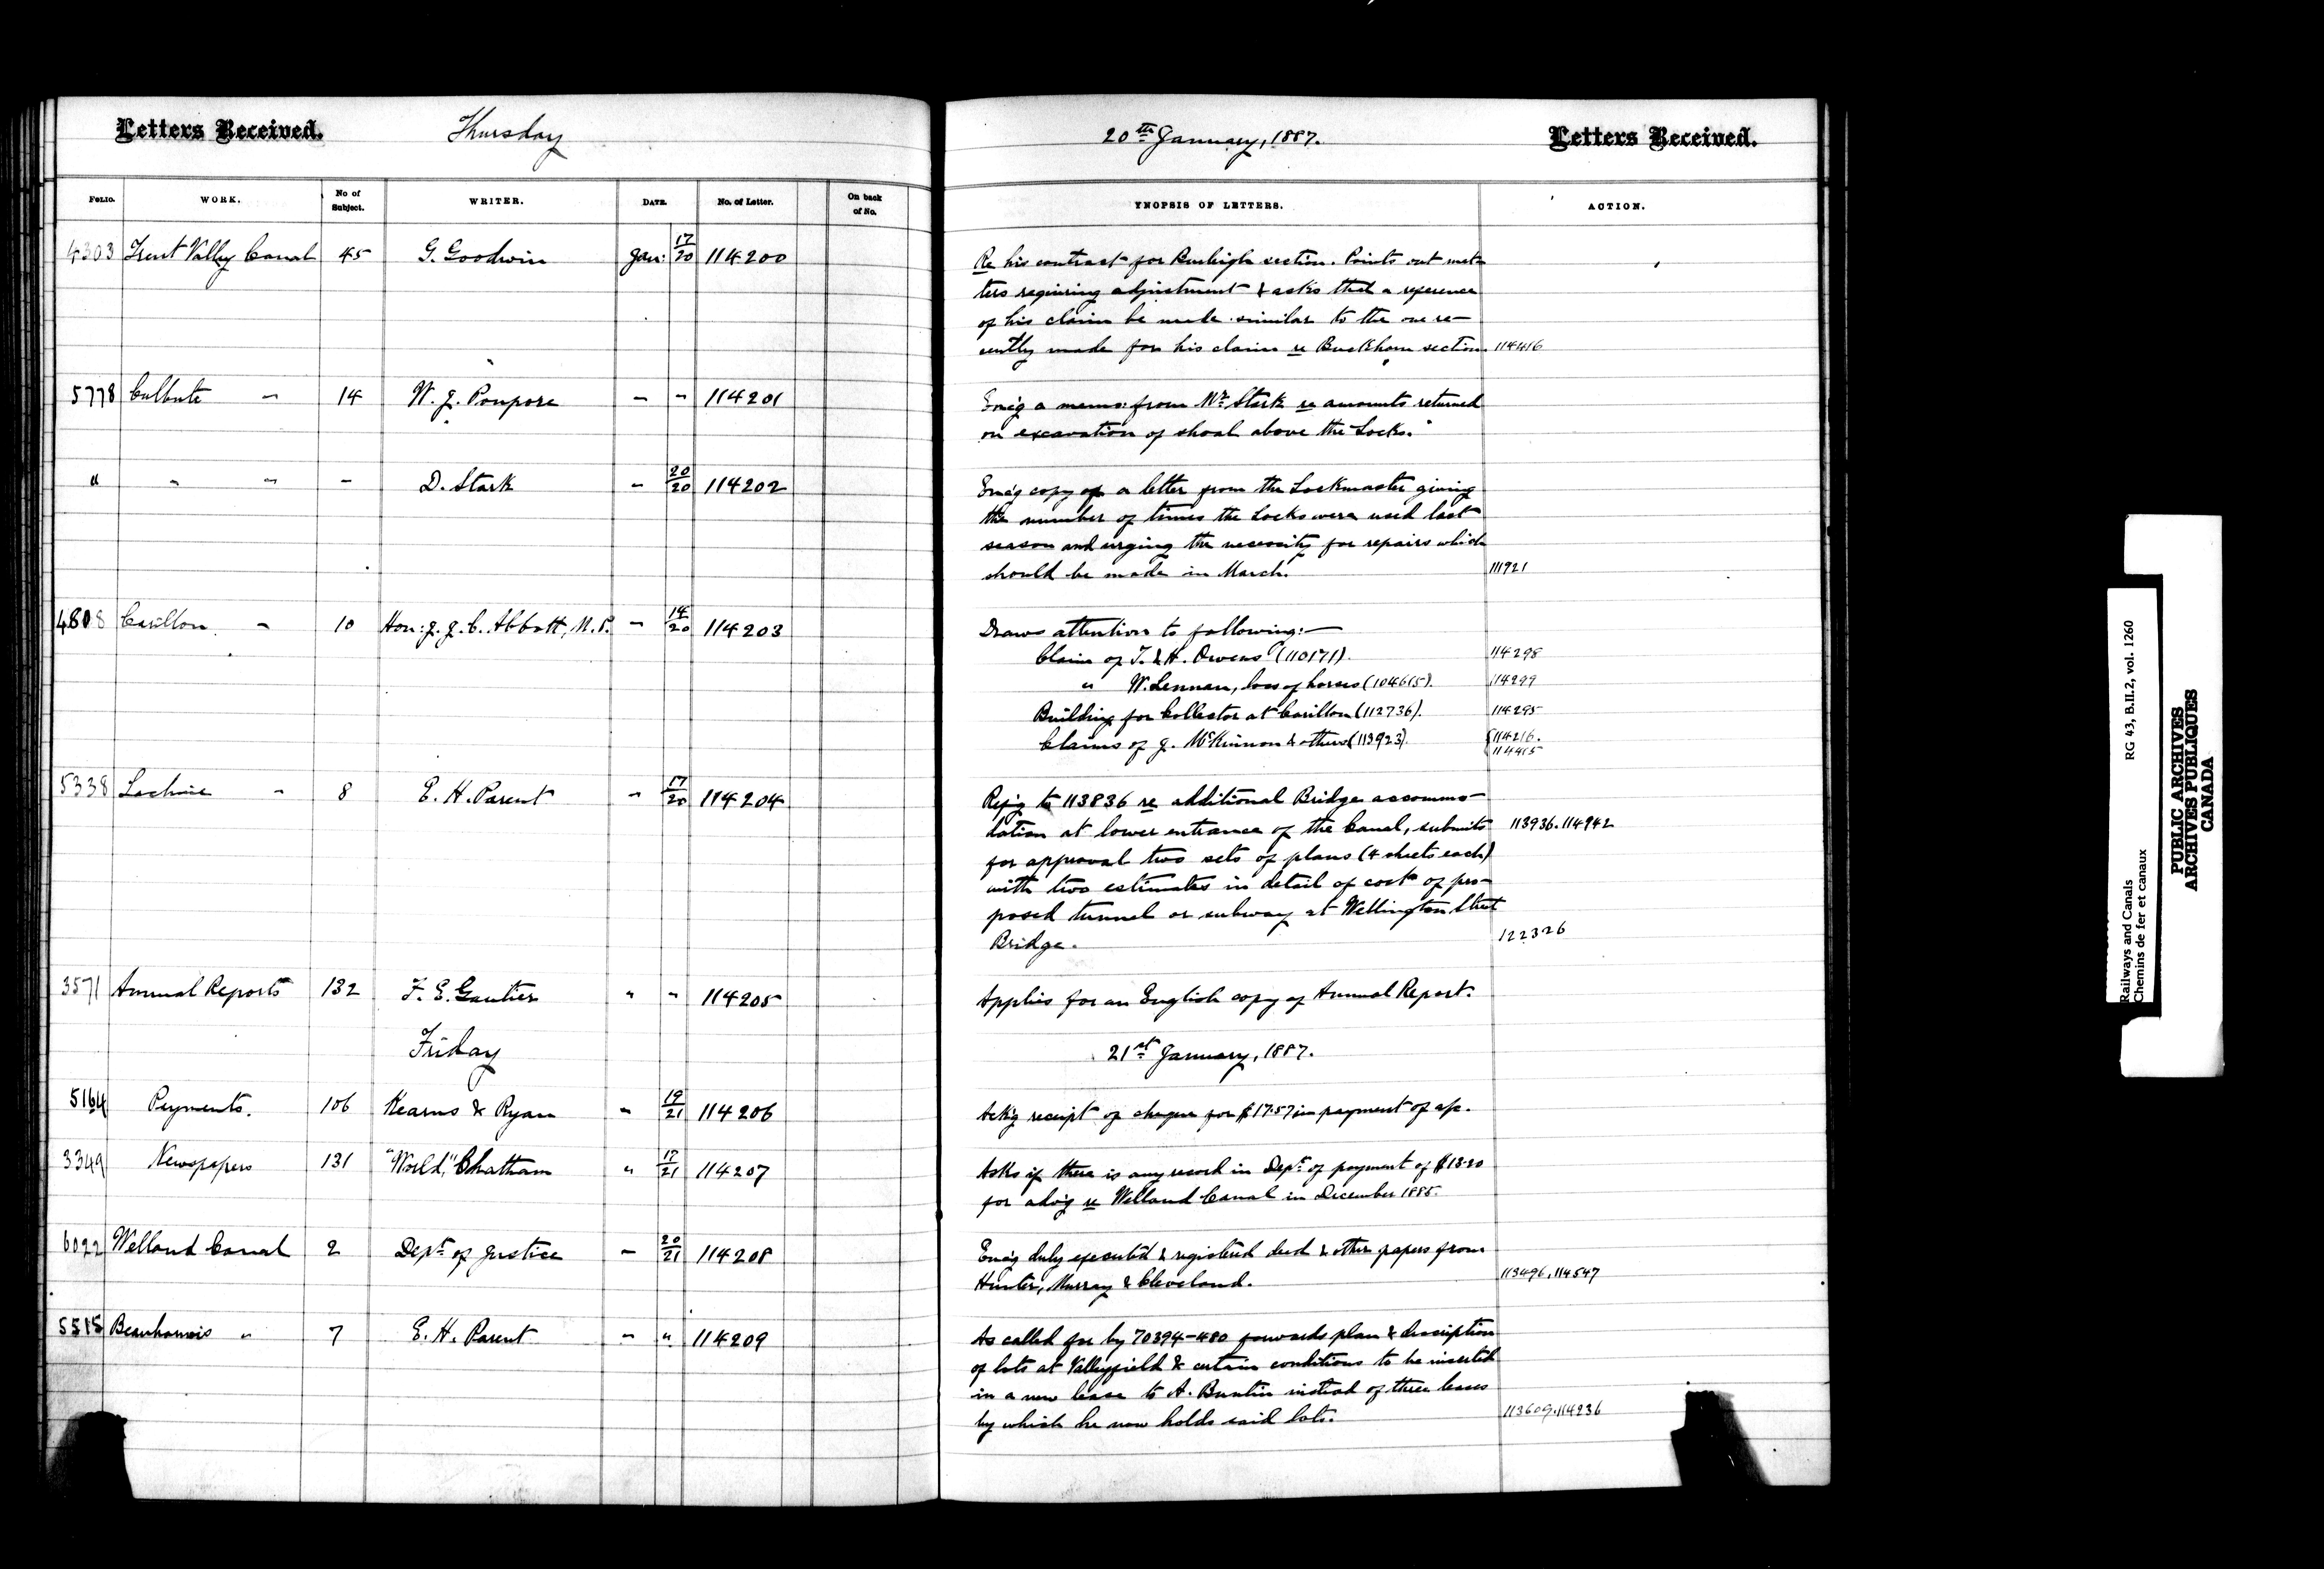 Letters Received.
Thursday
FOLIO. WORK. No of Subject. WRITER. DATE. No. of Letter. On back of No.
4303 Trent Valley Canal 45 G. Goodwin Jan: 17/20 114200
5778 Culbute " 14 W. J. Poupore " " 114201
" " " " D. Stark " 20/20 114202
4808 Carillon " 10 Hon: J. J. C. Abbott, M.P. " 14/20 114203
5338 Lachine " 8 E. H. Parent " 17/20 114204
3571 Annual Reports 132 F. E. Gautier " " 114205
Friday
5164 Payments. 106 Kearns & Ryan " 19/21 114206
3349 Newspapers 131 "World," Chatham " 17/21 114207
6022 Welland Canal 2 Dept. of Justice " 20/21 114208
5515 Beauharnois " 7 E. H. Parent " " 114209
20th January, 1887.
Letters Received.
YNOPSIS OF LETTERS. ACTION.
Re his contract for Burleigh section. Points out mat-
ters requiring adjustment & asks that a reference
of his claim be made similar to the one re-
cently made for his claim re Buckhorn section. 114416
Encg a memo: from Mr. Stark re amounts returned
on excavation of shoal above the Locks.
Encg copy of a letter from the Lockmaster giving
the number of times the Locks were used last
season and urging the necessity for repairs which
should be made in March. 111921
Draws attention to following:—
Claim of T. & H. Owens (110171). 114298
" W. Lennan, loss of horses (104615). 114299
Building for Collector at Carillon (112736). 114295
Claims of J. McKinnon & others (113923). 114216.
114415
Refg to 113836 re additional Bridge accommo-
dation at lower entrance of the Canal, submits 113936. 114942
for approval two sets of plans (4 sheets each)
with two estimates in detail of cost of pro-
posed tunnel or subway at Wellington Street
Bridge. 122326
Applies for an English copy of Annual Report.
21st January, 1887.
Ackg receipt of cheque for $17.57 in payment of a/c.
Asks if there is any record in Dept. of payment of $13.20
for advg re Welland Canal in December 1885.
Encg duly executed & registered deed & other papers from
Hunter, Murray & Cleveland. 113496. 114547
As called for by 70394-480 forwards plan & description
of lots at Valleyfield & certain conditions to be inserted
in a new lease to A. Buntin instead of three leases
by which he now holds said lots. 113609. 114236
RG 43, B.II.2, vol. 1260
Railways and Canals
Chemins de fer et canaux
PUBLIC ARCHIVES
ARCHIVES PUBLIQUES
CANADA